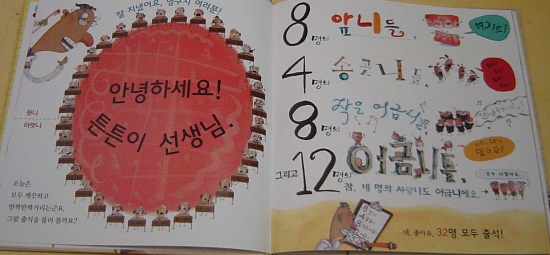 잘 지냈어요, 양쿠시 여러분!
안녕하세요!
튼튼이 선생님.
윗니
아랫니
오늘은
모두 깨끗하고
반짝반짝거리는군요,
그럼 출석을 불러 볼까요?
8명의 앞니들,
여기요!
4명의 송곳니들,
8명의 작은 어금니들,
있어요!
그리고 12명의 어금니들,
참, 네 명의 사랑니도 어금니예요.
네, 좋아요. 32명 모두 출석!